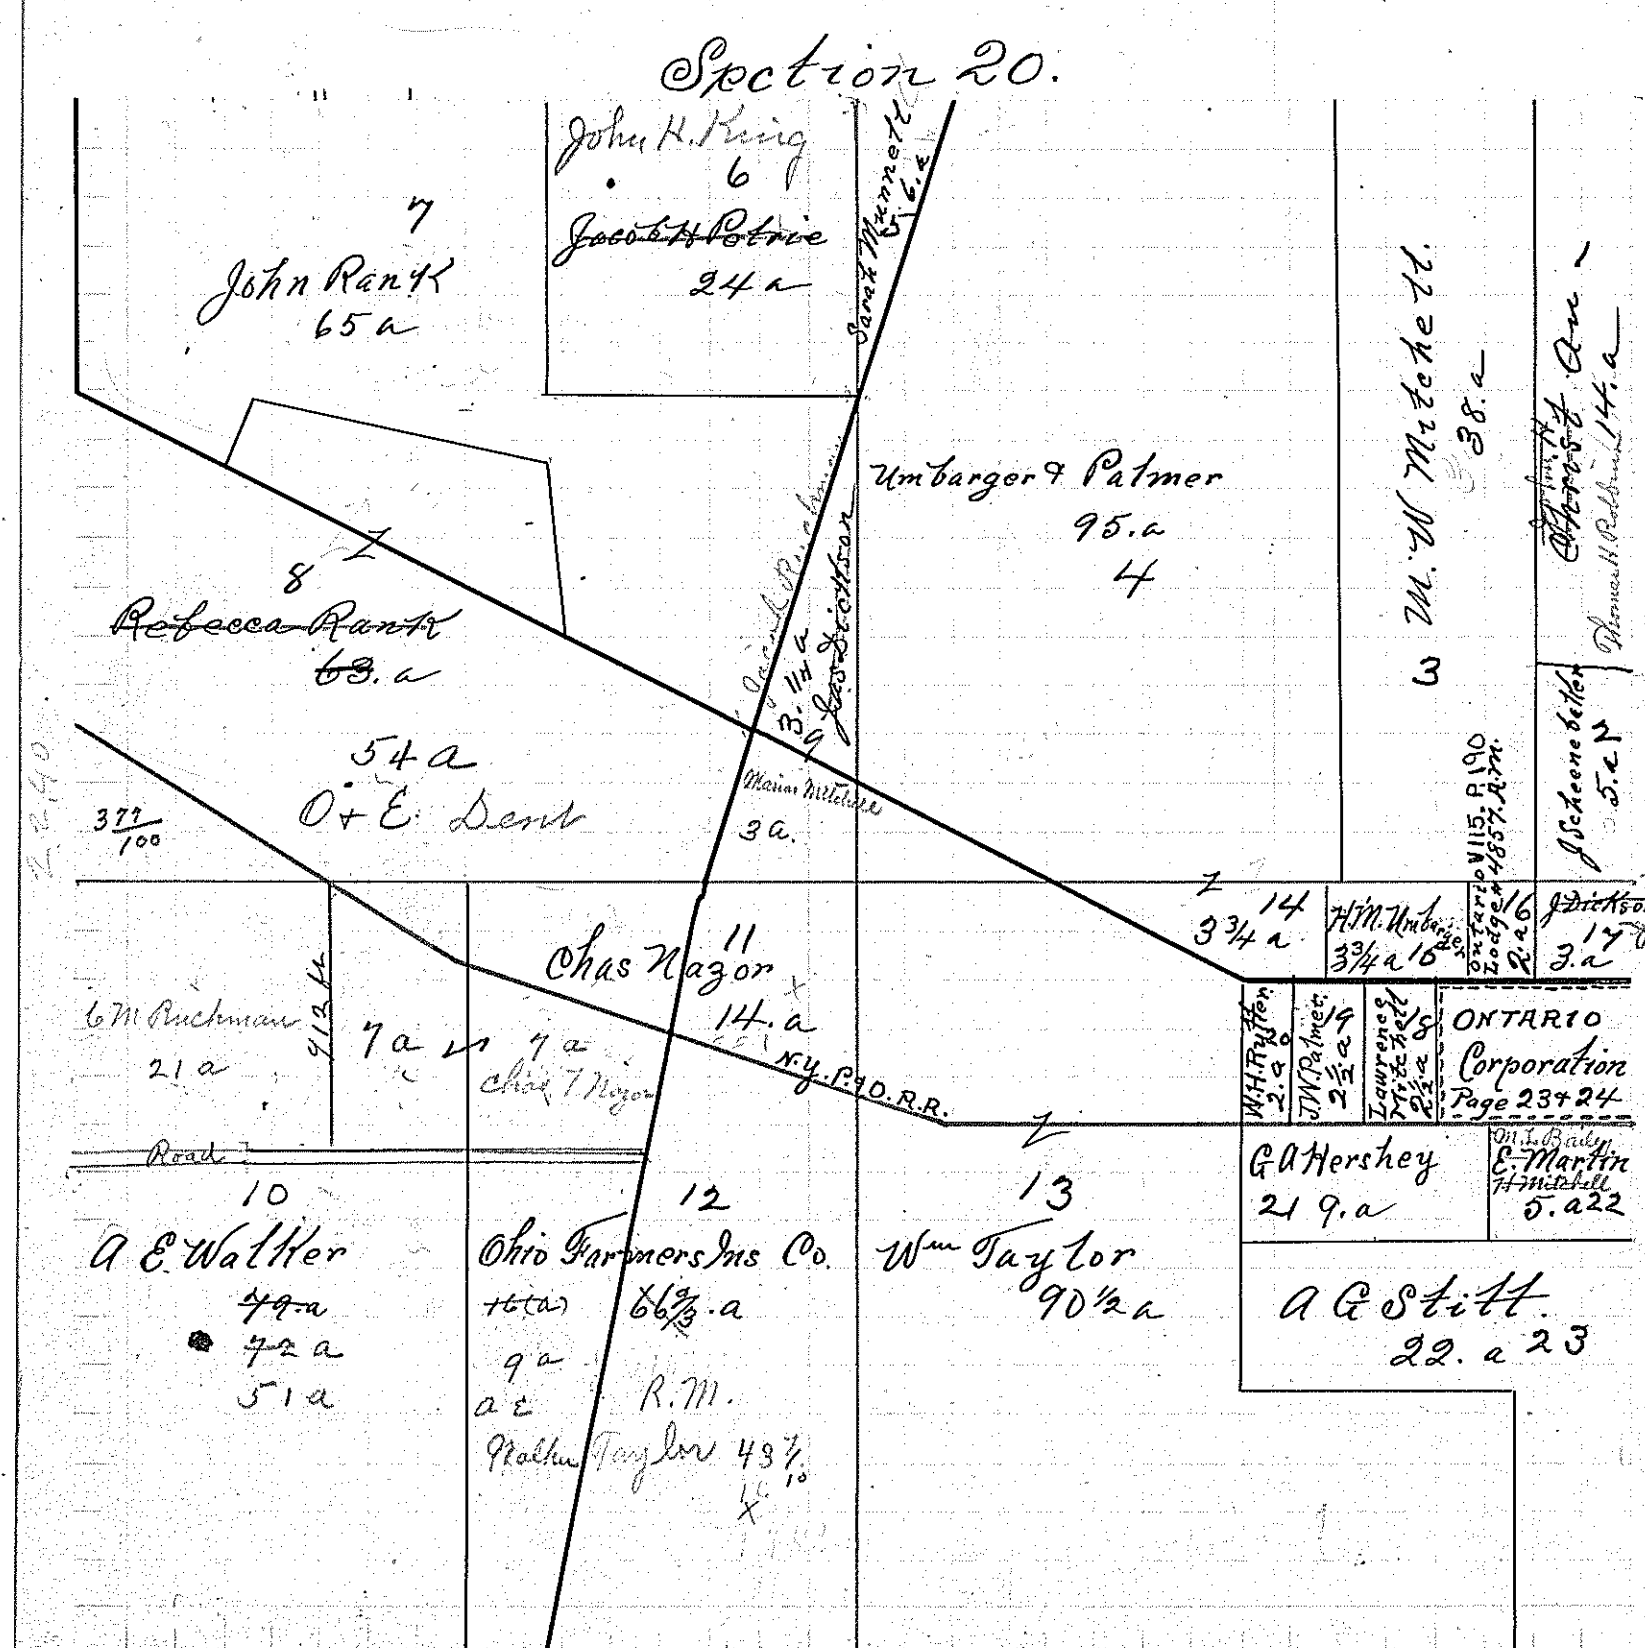 Section 20.
John H. King
6
Jacob H Petrie
24 a
7
John Rank
65 a
Sarah Munnell
5. 6. a
Umbarger & Palmer
95. a
4
M. W Mitchell.
38. a
3
Thomas H
14. a
J Scheenebetter
5. a 2
8
Rebecca Rank
63. a
54 a
O + E. Dent
377/100
Jacob
3. 114 a
9 Jas Dickson
Marion Mitchell
3 a.
Ontario V 115. P. 190
Lodge # 4857. A.M.
16
2. a
14
3 3/4 a
H.M. Umbarger
3 3/4 a 15
J Dickson
17
3. a
11
Chas Nazor
14. a
6 M Ruckman
21 a
912 ft
7 a
7 a
Chas T Nazor
N.Y. P. & O. R.R.
W.H. Ruffer.
2. a 20
J.W. Palmer.
2 1/2 a 19
Lawrence
Mitchell
2 1/2 a 18
ONTARIO
Corporation
Page 23 & 24
Road
10
A E. Walker
79. a
72 a
51 a
12
Ohio Farmers Ins Co.
16 (a) 66 2/3. a
9 a
a E
Walker
R. M.
Taylor 49 7/10
X
13
Wm Taylor
90 1/2 a
G A Hershey
21 9. a
M. L Bailey
E. Martin
H Mitchell
5. a 22
A G Stitt.
22. a 23